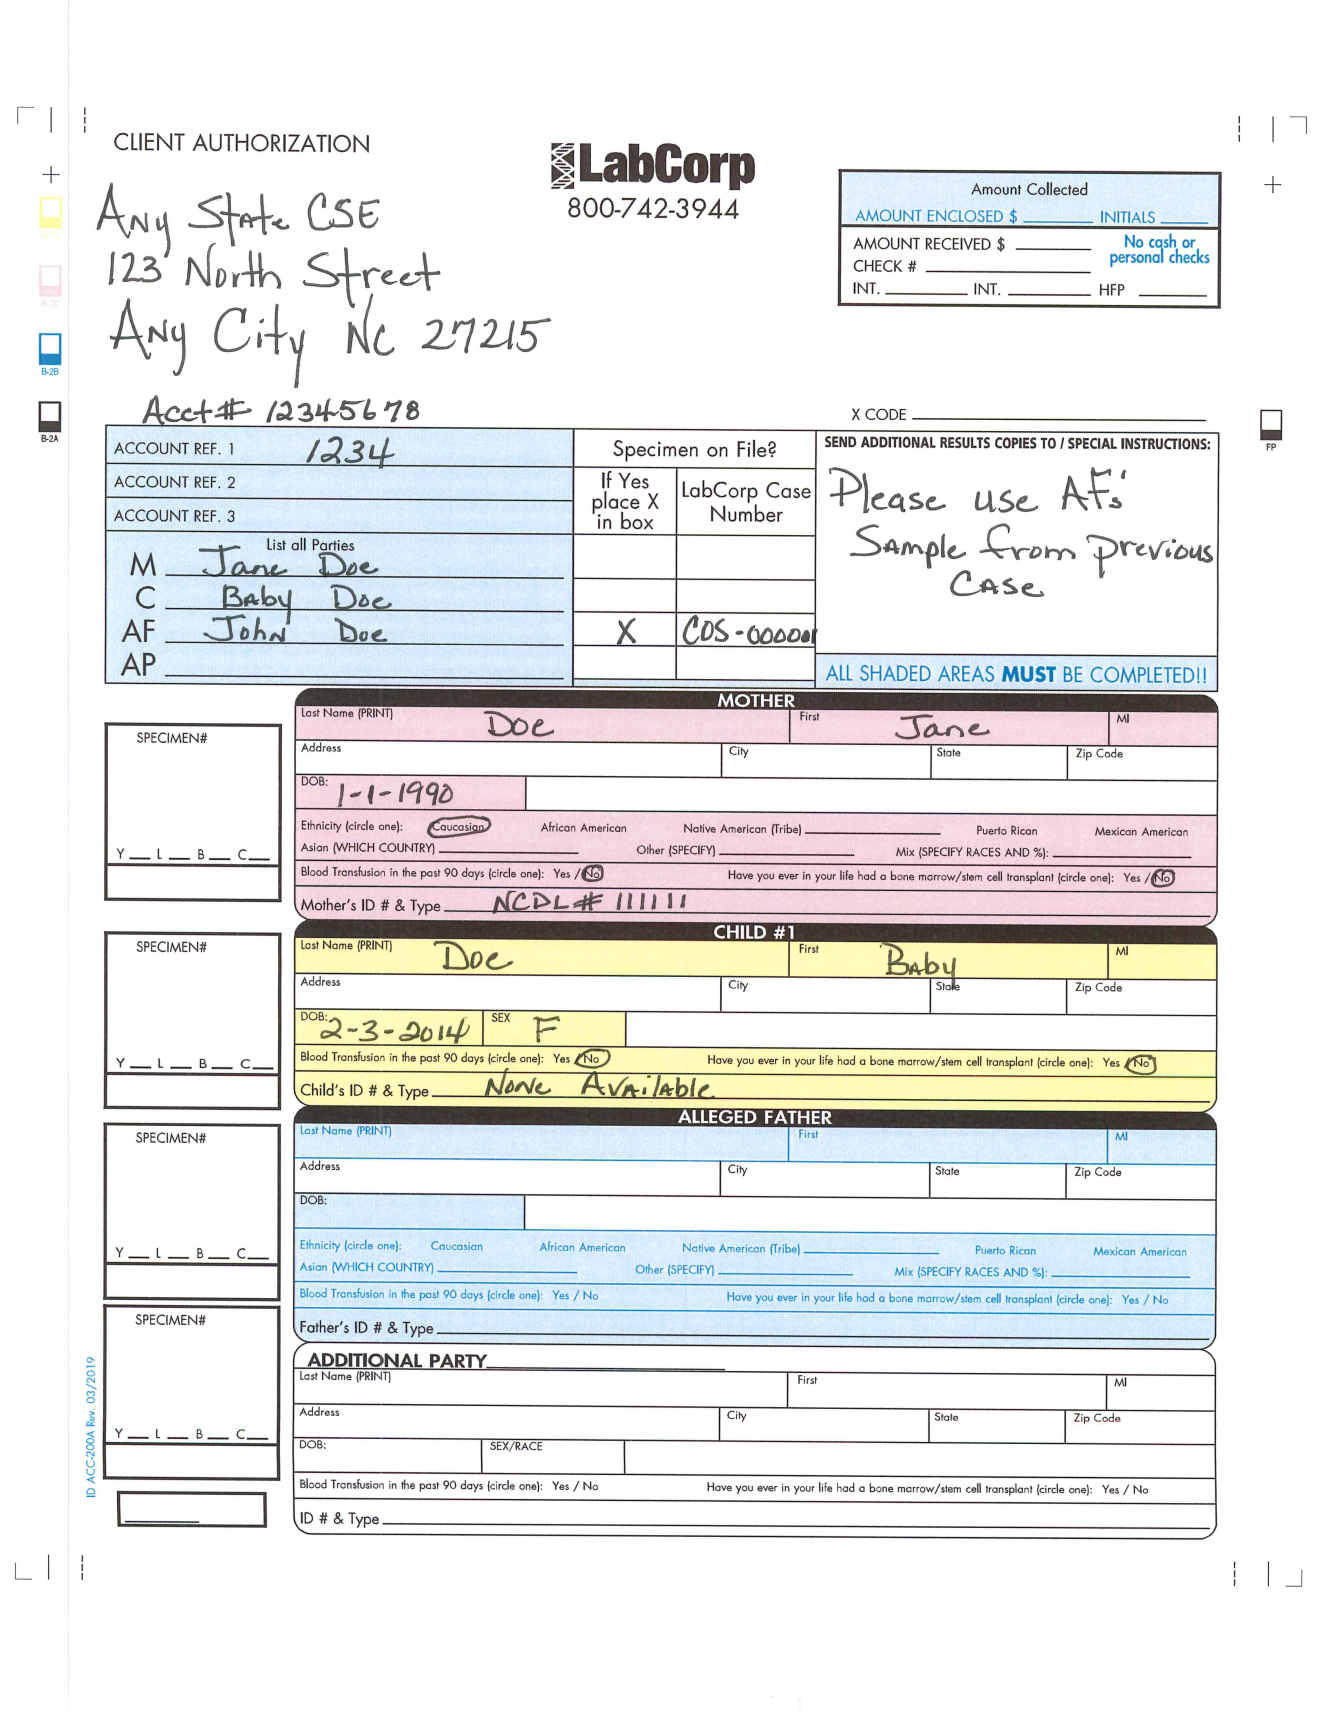 CLIENT AUTHORIZATION
LabCorp
800-742-3944
Any State CSE
123 North Street
Any City NC 27215
Acct# 12345678
Amount Collected
AMOUNT ENCLOSED $ ______ INITIALS ______
AMOUNT RECEIVED $ ______
No cash or
personal checks
CHECK # ______
INT. ______ INT. ______ HFP ______
B-2B
B-2A
FP
X CODE ______
ACCOUNT REF. 1 1234
ACCOUNT REF. 2
ACCOUNT REF. 3
List all Parties
M Jane Doe
C Baby Doe
AF John Doe
AP
Specimen on File?
If Yes
place X
in box
LabCorp Case
Number
X CDS-000001
SEND ADDITIONAL RESULTS COPIES TO / SPECIAL INSTRUCTIONS:
Please use AFs'
Sample from previous
Case
ALL SHADED AREAS MUST BE COMPLETED!!
MOTHER
SPECIMEN#
Y __ L __ B __ C __
Last Name (PRINT) Doe First Jane MI
Address City State Zip Code
DOB: 1-1-1990
Ethnicity (circle one): Caucasian African American Native American (Tribe) ______ Puerto Rican Mexican American
Asian (WHICH COUNTRY) ______ Other (SPECIFY) ______ Mix (SPECIFY RACES AND %): ______
Blood Transfusion in the past 90 days (circle one): Yes / No Have you ever in your life had a bone marrow/stem cell transplant (circle one): Yes / No
Mother's ID # & Type NCDL# 111111
CHILD #1
SPECIMEN#
Y __ L __ B __ C __
Last Name (PRINT) Doe First Baby MI
Address City State Zip Code
DOB: 2-3-2014 SEX F
Blood Transfusion in the past 90 days (circle one): Yes / No Have you ever in your life had a bone marrow/stem cell transplant (circle one): Yes / No
Child's ID # & Type None Available
ALLEGED FATHER
SPECIMEN#
Y __ L __ B __ C __
Last Name (PRINT) First MI
Address City State Zip Code
DOB:
Ethnicity (circle one): Caucasian African American Native American (Tribe) ______ Puerto Rican Mexican American
Asian (WHICH COUNTRY) ______ Other (SPECIFY) ______ Mix (SPECIFY RACES AND %): ______
Blood Transfusion in the past 90 days (circle one): Yes / No Have you ever in your life had a bone marrow/stem cell transplant (circle one): Yes / No
Father's ID # & Type ______
ADDITIONAL PARTY ______
SPECIMEN#
Y __ L __ B __ C __
Last Name (PRINT) First MI
Address City State Zip Code
DOB: SEX/RACE
Blood Transfusion in the past 90 days (circle one): Yes / No Have you ever in your life had a bone marrow/stem cell transplant (circle one): Yes / No
ID # & Type ______
ID ACC-200A Rev. 03/2019